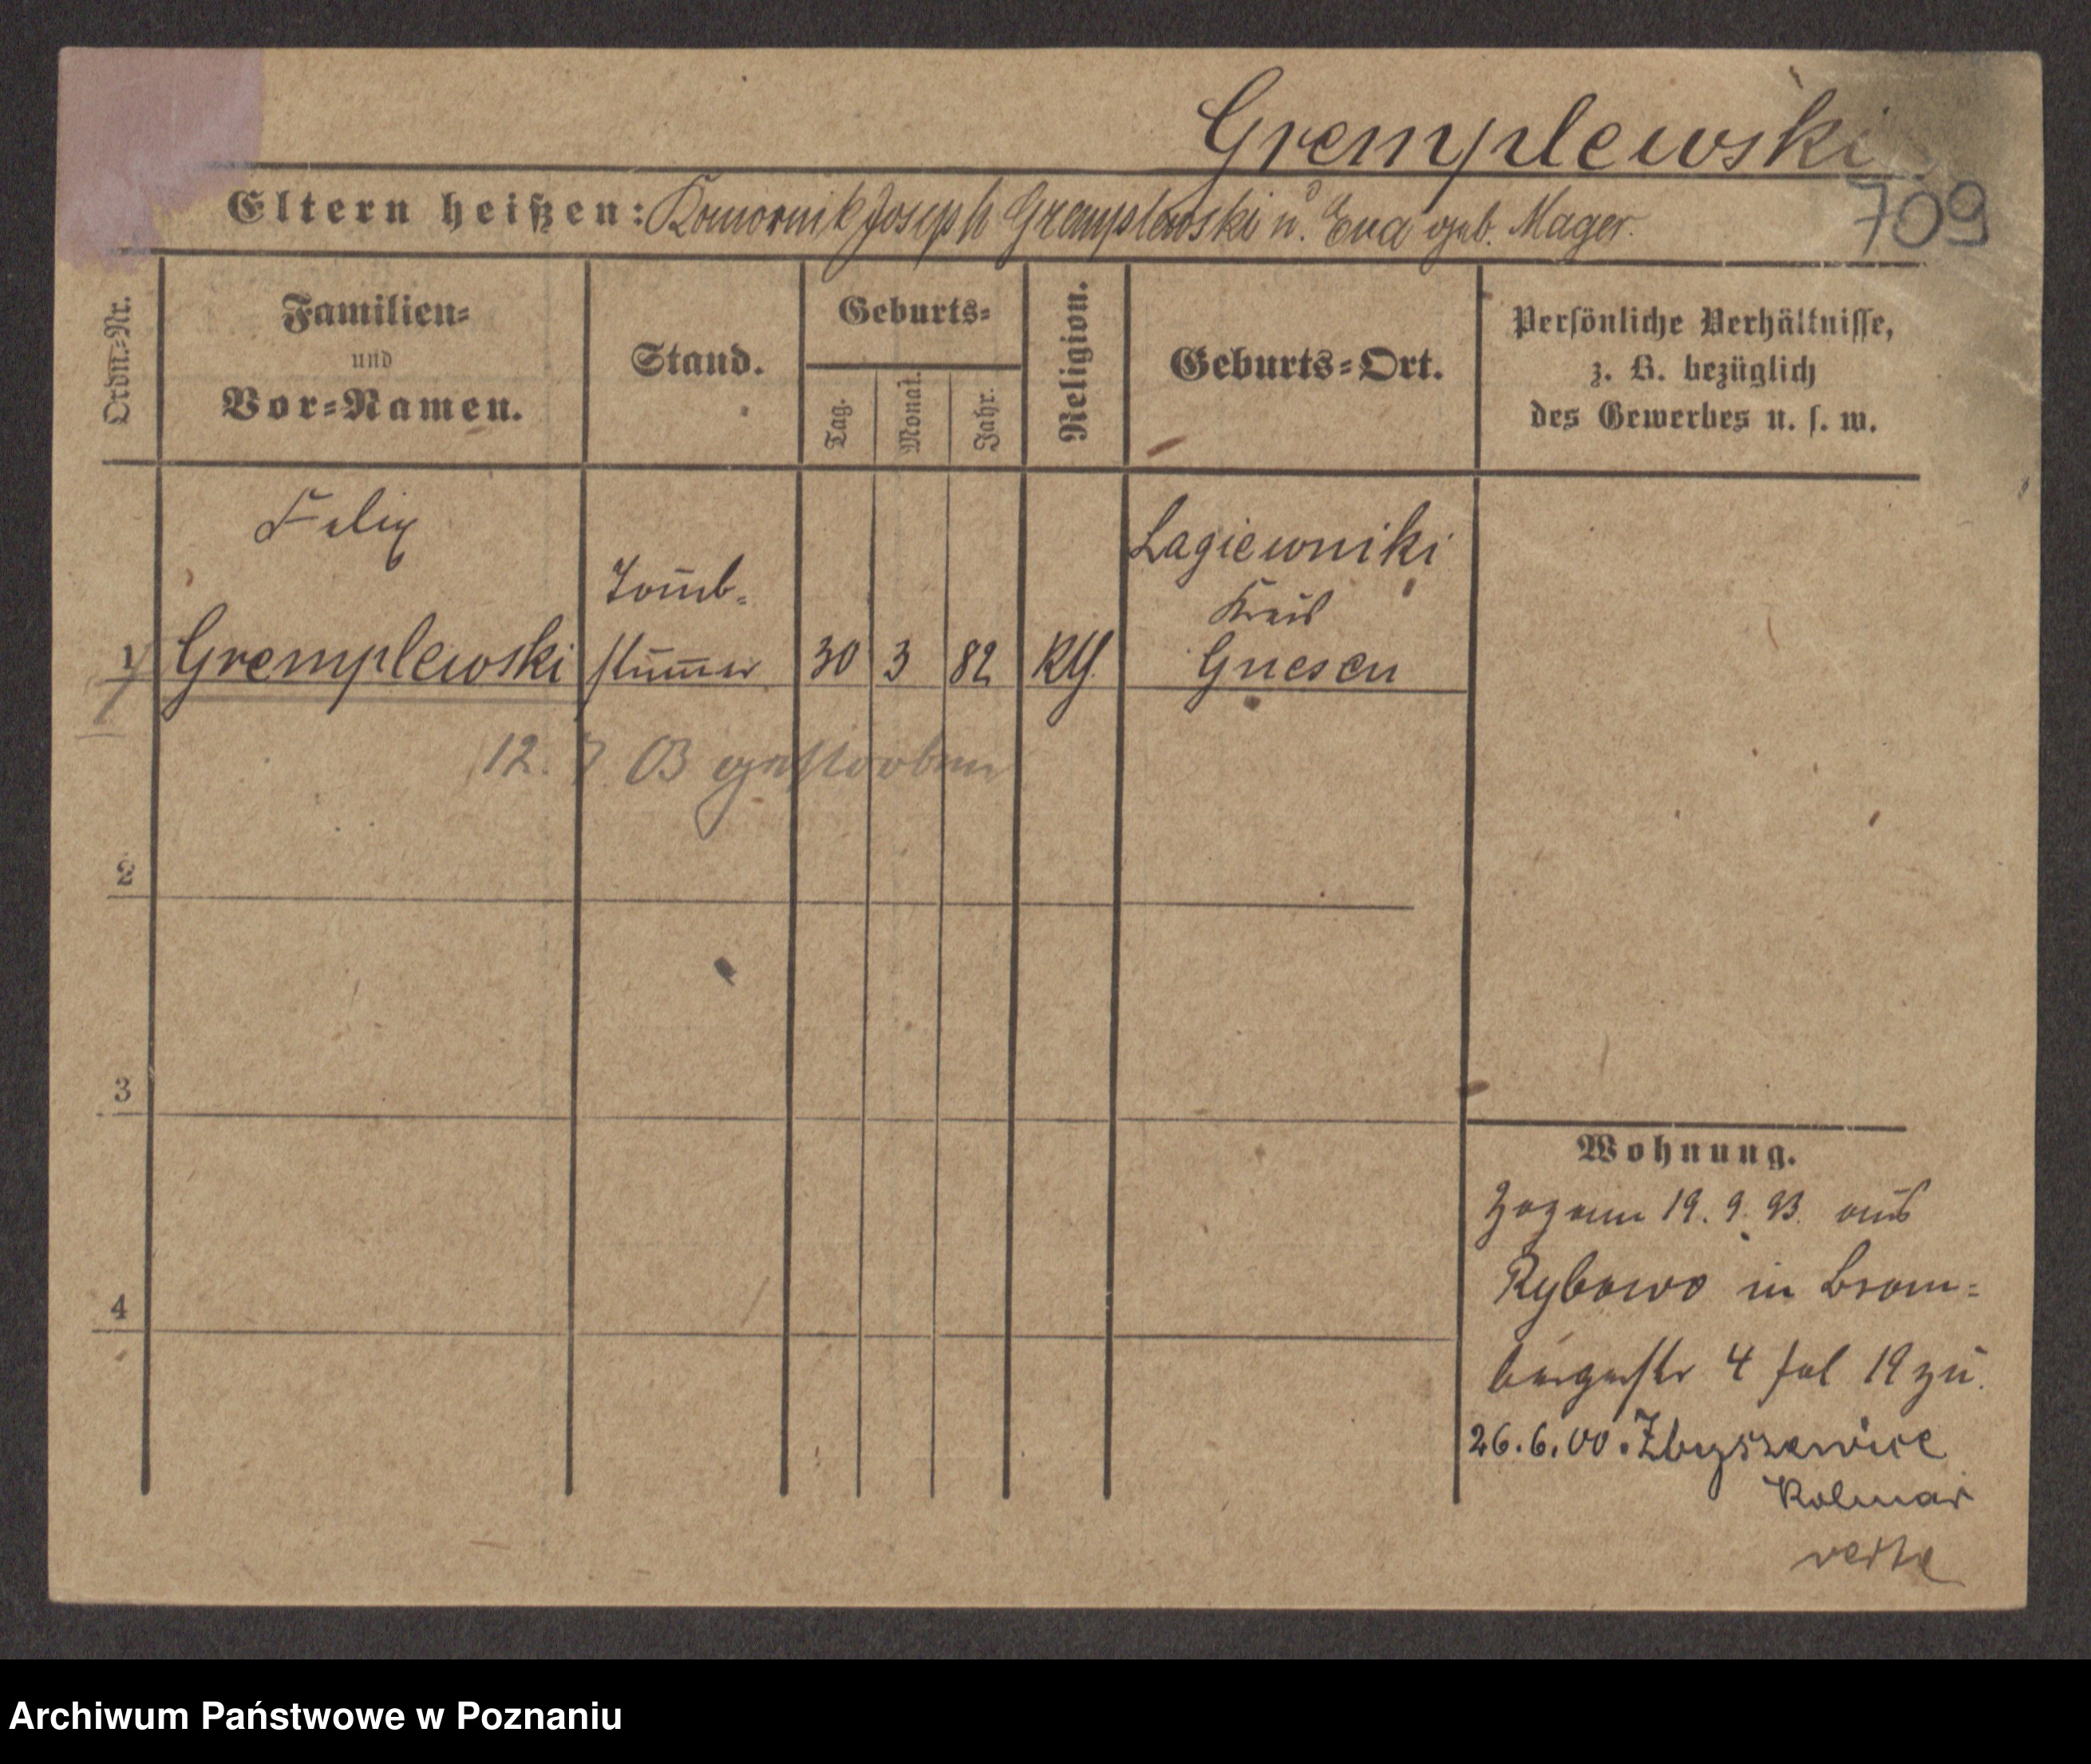 Gremplewski
709
Eltern heißen: Komornik Joseph Gremplewski u. Eva geb. Mager.
Ordn.-Nr.
Familien-
und
Vor-Namen.
Stand.
Geburts-
Tag.
Monat.
Jahr.
Religion.
Geburts-Ort.
Persönliche Verhältnisse,
z. B. bezüglich
des Gewerbes u. s. w.
Felix
Gremplewski
Taub-
stummer
30 3 82
Lagiewniki
Kreis
Gnesen
12. 7. 03 gestorben
2
3
4
Wohnung.
Zozann 19. 9. 93. aus
Rybowo in Brom-
bergerstr 4 fol 19 zu.
26.6.00. Zbyszewice
Kolmar
verte
Archiwum Państwowe w Poznaniu